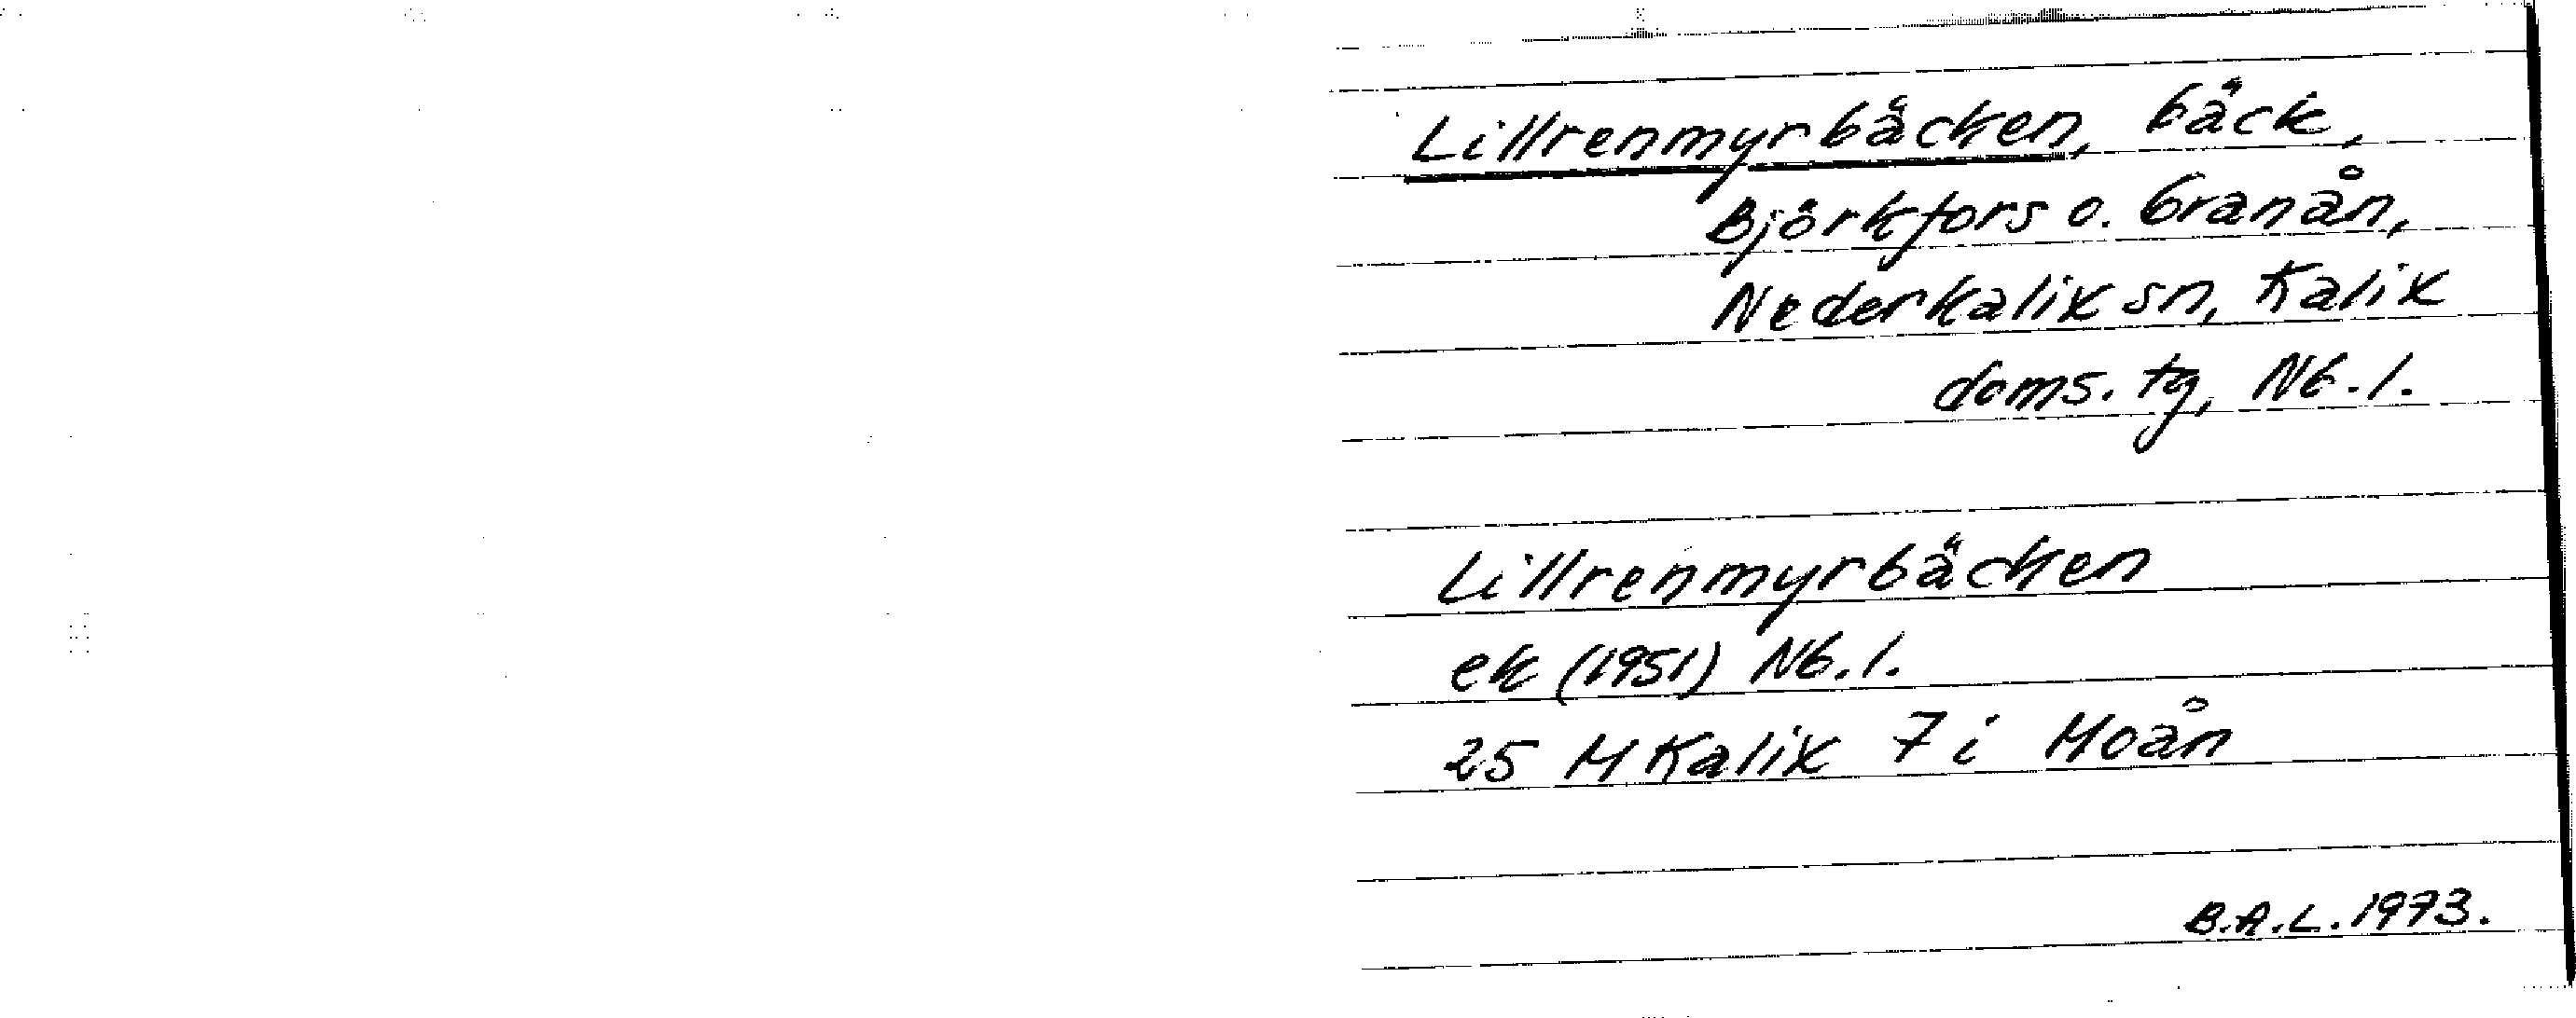 Lillrenmyrbäcken, bäck,
Björkfors o. Granån,
Nederkalix sn, Kalix
doms. tg, Nb. l.
Lillrenmyrbäcken
ek (1951) Nb. l.
25 M Kalix 7 i Moån
B.A.L. 1973.